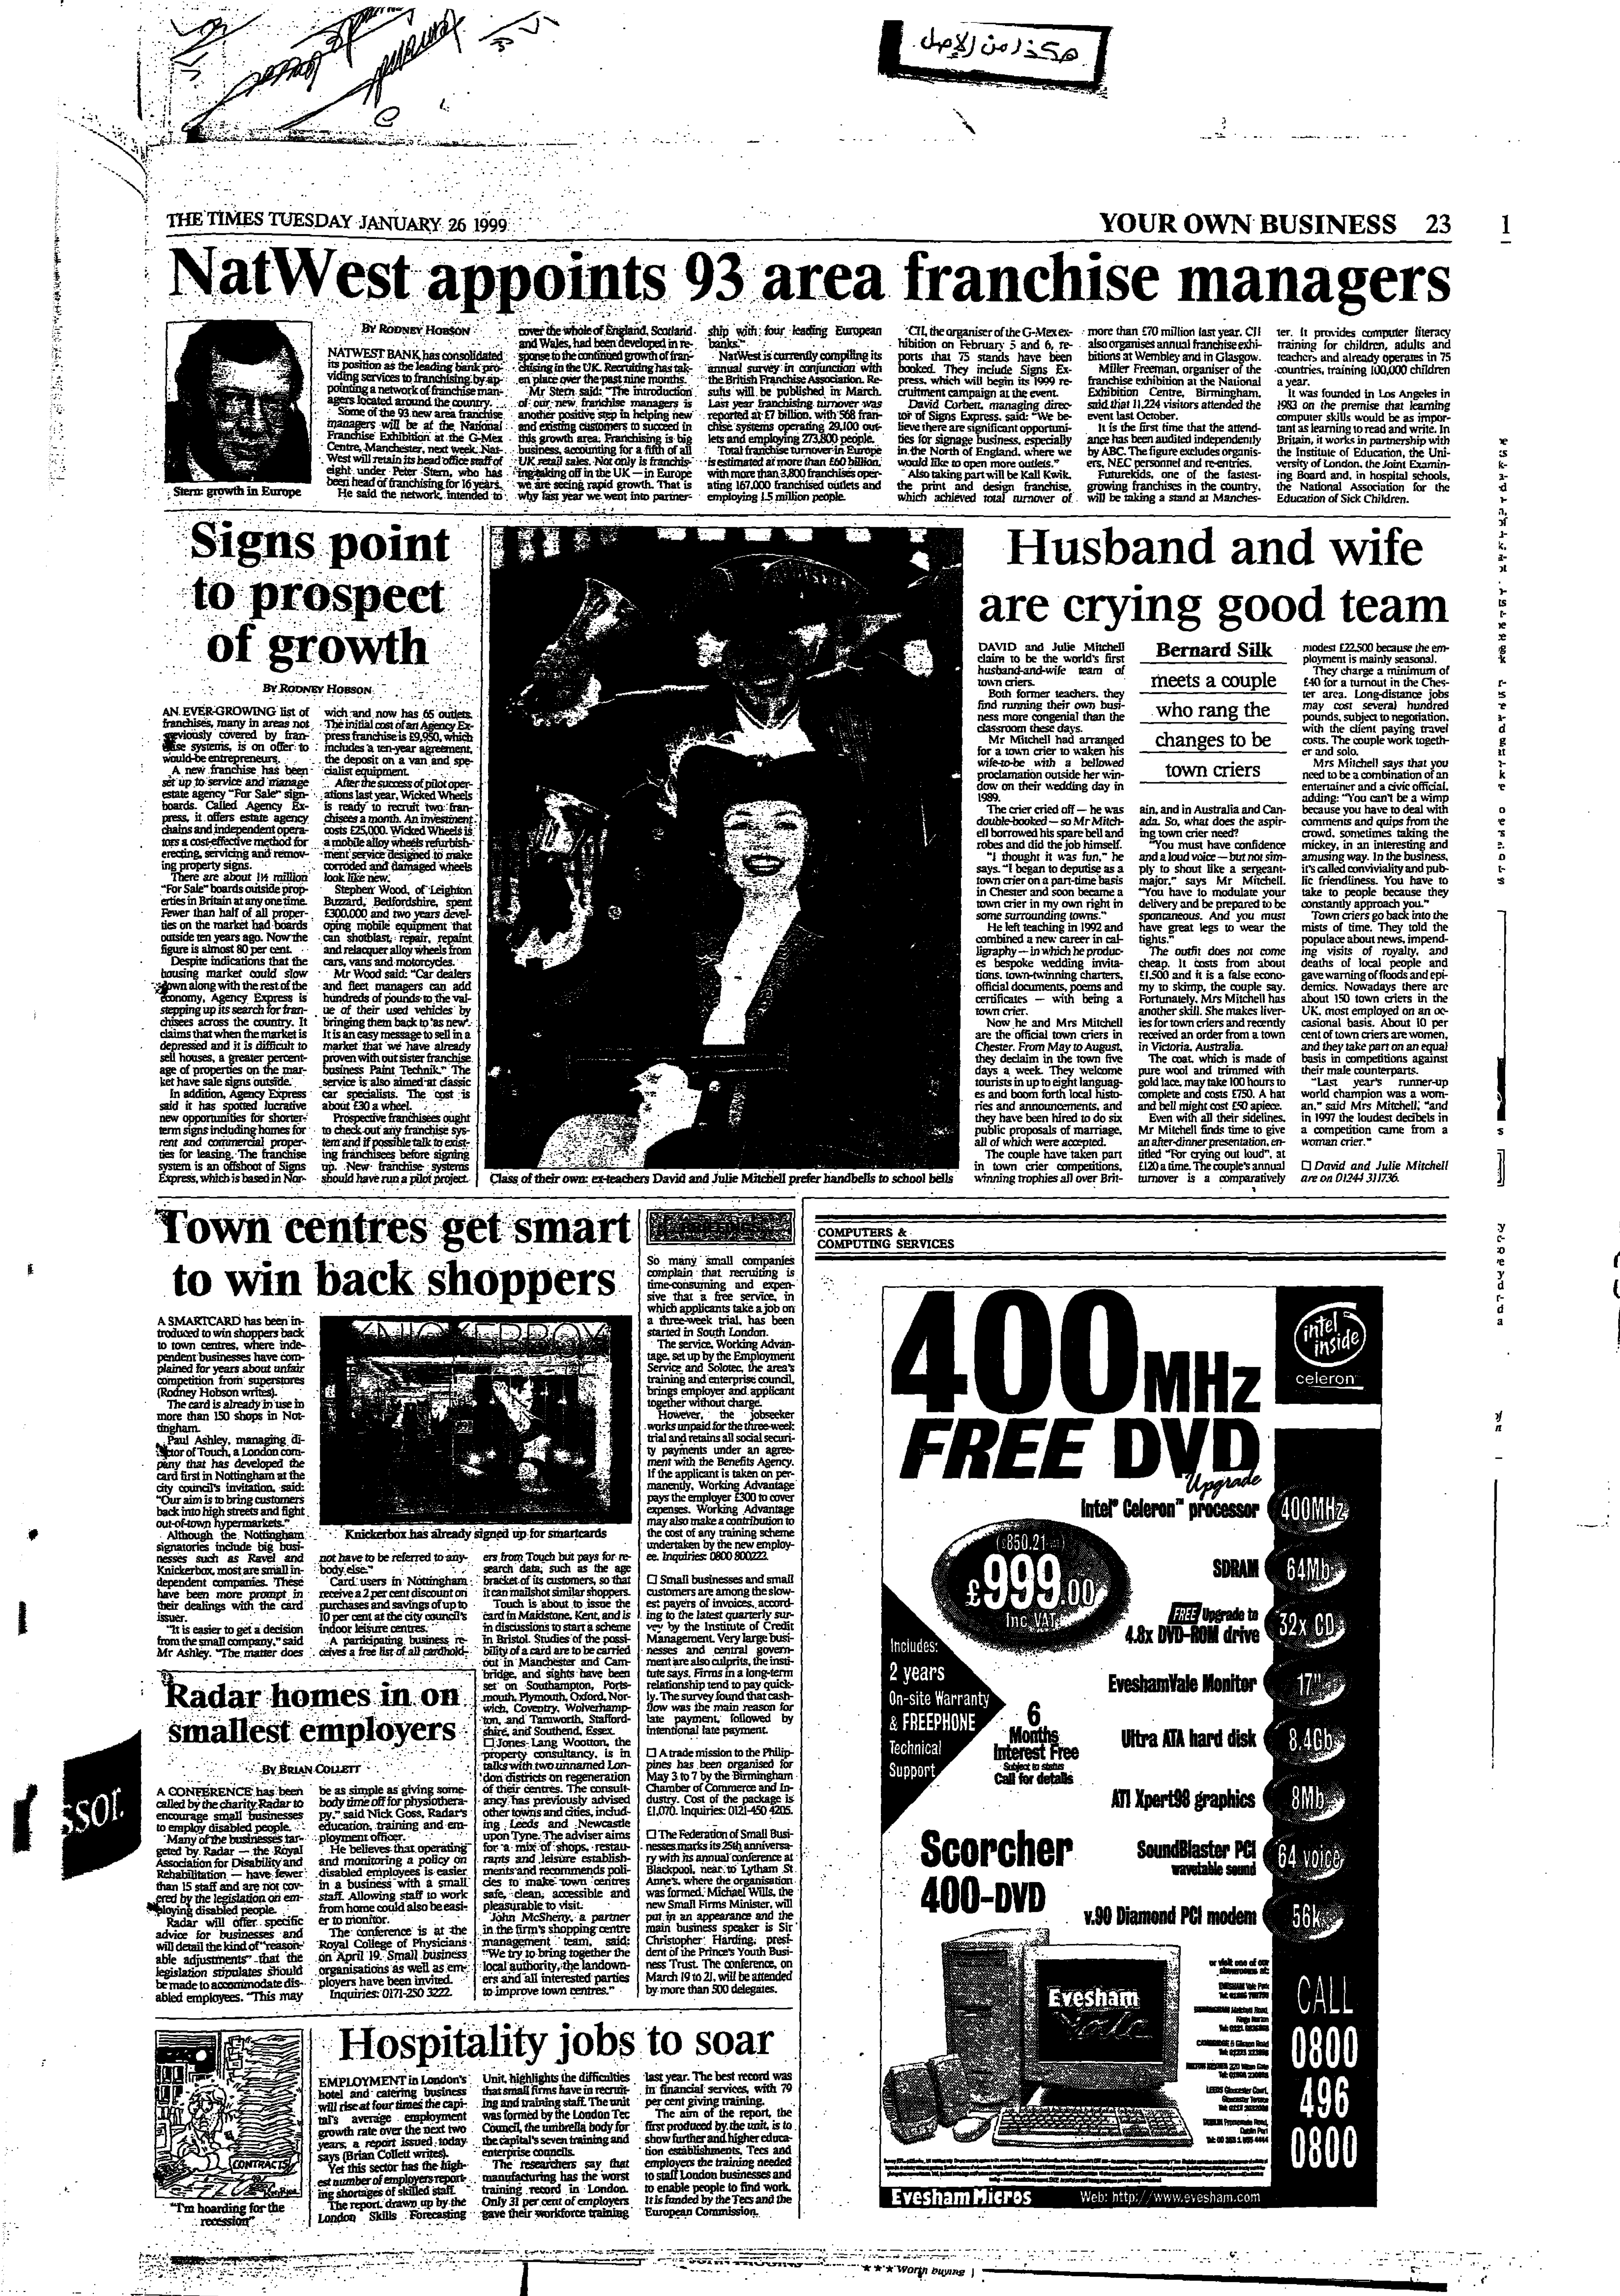 هكذا من الاصل
THE TIMES TUESDAY JANUARY 26 1999
YOUR OWN BUSINESS 23
1
NatWest appoints 93 area franchise managers
Stern: growth in Europe
BY RODNEY HOBSON
NATWEST BANK has consolidated
its position as the leading bank pro-
viding services to franchising by ap-
pointing a network of franchise man-
agers located around the country.
Some of the 93 new area franchise
managers will be at the National
Franchise Exhibition at the G-Mex
Centre, Manchester, next week. Nat-
West will retain its head office staff of
eight under Peter Stern, who has
been head of franchising for 16 years.
He said the network, intended to
cover the whole of England, Scotland
and Wales, had been developed in re-
sponse to the continued growth of fran-
chising in the UK. Recruiting has tak-
en place over the past nine months.
Mr Stern said: "The introduction
of our new franchise managers is
another positive step in helping new
and existing customers to succeed in
this growth area. Franchising is big
business, accounting for a fifth of all
UK retail sales. Not only is franchis-
ing taking off in the UK — in Europe
we are seeing rapid growth. That is
why last year we went into partner-
ship with four leading European
banks."
NatWest is currently compiling its
annual survey in conjunction with
the British Franchise Association. Re-
sults will be published in March.
Last year franchising turnover was
reported at £7 billion, with 568 fran-
chise systems operating 29,100 out-
lets and employing 273,800 people.
Total franchise turnover in Europe
is estimated at more than £60 billion,
with more than 3,800 franchises oper-
ating 167,000 franchised outlets and
employing 1.5 million people.
CII, the organiser of the G-Mex ex-
hibition on February 5 and 6, re-
ports that 75 stands have been
booked. They include Signs Ex-
press, which will begin its 1999 re-
cruitment campaign at the event.
David Corbett, managing direc-
tor of Signs Express, said: "We be-
lieve there are significant opportuni-
ties for signage business, especially
in the North of England, where we
would like to open more outlets."
Also taking part will be Kall Kwik,
the print and design franchise,
which achieved total turnover of
more than £70 million last year. CII
also organises annual franchise exhi-
bitions at Wembley and in Glasgow.
Miller Freeman, organiser of the
franchise exhibition at the National
Exhibition Centre, Birmingham,
said that 11,224 visitors attended the
event last October.
It is the first time that the attend-
ance has been audited independently
by ABC. The figure excludes organis-
ers, NEC personnel and re-entries.
Futurekids, one of the fastest-
growing franchises in the country,
will be taking a stand at Manches-
ter. It provides computer literacy
training for children, adults and
teachers and already operates in 75
countries, training 100,000 children
a year.
It was founded in Los Angeles in
1983 on the premise that learning
computer skills would be as impor-
tant as learning to read and write. In
Britain, it works in partnership with
the Institute of Education, the Uni-
versity of London, the Joint Examin-
ing Board and, in hospital schools,
the National Association for the
Education of Sick Children.
Signs point
to prospect
of growth
BY RODNEY HOBSON
AN EVER-GROWING list of
franchises, many in areas not
previously covered by fran-
chise systems, is on offer to
would-be entrepreneurs.
A new franchise has been
set up to service and manage
estate agency "For Sale" sign-
boards. Called Agency Ex-
press, it offers estate agency
chains and independent opera-
tors a cost-effective method for
erecting, servicing and remov-
ing property signs.
There are about 1½ million
"For Sale" boards outside prop-
erties in Britain at any one time.
Fewer than half of all proper-
ties on the market had boards
outside ten years ago. Now the
figure is almost 80 per cent.
Despite indications that the
housing market could slow
down along with the rest of the
economy, Agency Express is
stepping up its search for fran-
chisees across the country. It
claims that when the market is
depressed and it is difficult to
sell houses, a greater percent-
age of properties on the mar-
ket have sale signs outside.
In addition, Agency Express
said it has spotted lucrative
new opportunities for shorter-
term signs including homes for
rent and commercial proper-
ties for leasing. The franchise
system is an offshoot of Signs
Express, which is based in Nor-
wich and now has 65 outlets.
The initial cost of an Agency Ex-
press franchise is £9,950, which
includes a ten-year agreement,
the deposit on a van and spe-
cialist equipment.
After the success of pilot oper-
ations last year, Wicked Wheels
is ready to recruit two fran-
chisees a month. An investment
costs £25,000. Wicked Wheels is
a mobile alloy wheels refurbish-
ment service designed to make
corroded and damaged wheels
look like new.
Stephen Wood, of Leighton
Buzzard, Bedfordshire, spent
£300,000 and two years devel-
oping mobile equipment that
can shotblast, repair, repaint
and relacquer alloy wheels from
cars, vans and motorcycles.
Mr Wood said: "Car dealers
and fleet managers can add
hundreds of pounds to the val-
ue of their used vehicles by
bringing them back to 'as new'.
It is an easy message to sell in a
market that we have already
proven with out sister franchise
business Paint Technik." The
service is also aimed at classic
car specialists. The cost is
about £30 a wheel.
Prospective franchisees ought
to check out any franchise sys-
tem and if possible talk to exist-
ing franchisees before signing
up. New franchise systems
should have run a pilot project.
Class of their own: ex-teachers David and Julie Mitchell prefer handbells to school bells
Husband and wife
are crying good team
Bernard Silk
meets a couple
who rang the
changes to be
town criers
DAVID and Julie Mitchell
claim to be the world's first
husband-and-wife team of
town criers.
Both former teachers, they
find running their own busi-
ness more congenial than the
classroom these days.
Mr Mitchell had arranged
for a town crier to waken his
wife-to-be with a bellowed
proclamation outside her win-
dow on their wedding day in
1989.
The crier cried off — he was
double-booked — so Mr Mitch-
ell borrowed his spare bell and
robes and did the job himself.
"I thought it was fun," he
says. "I began to deputise as a
town crier on a part-time basis
in Chester and soon became a
town crier in my own right in
some surrounding towns."
He left teaching in 1992 and
combined a new career in cal-
ligraphy — in which he produc-
es bespoke wedding invita-
tions, town-twinning charters,
official documents, poems and
certificates — with being a
town crier.
Now he and Mrs Mitchell
are the official town criers in
Chester. From May to August,
they declaim in the town five
days a week. They welcome
tourists in up to eight languag-
es and boom forth local histo-
ries and announcements, and
they have been hired to do six
public proposals of marriage,
all of which were accepted.
The couple have taken part
in town crier competitions,
winning trophies all over Brit-
ain, and in Australia and Can-
ada. So, what does the aspir-
ing town crier need?
"You must have confidence
and a loud voice — but not sim-
ply to shout like a sergeant-
major," says Mr Mitchell.
"You have to modulate your
delivery and be prepared to be
spontaneous. And you must
have great legs to wear the
tights."
The outfit does not come
cheap. It costs from about
£1,500 and it is a false econo-
my to skimp, the couple say.
Fortunately, Mrs Mitchell has
another skill. She makes liver-
ies for town criers and recently
received an order from a town
in Victoria, Australia.
The coat, which is made of
pure wool and trimmed with
gold lace, may take 100 hours to
complete and costs £750. A hat
and bell might cost £50 apiece.
Even with all their sidelines,
Mr Mitchell finds time to give
an after-dinner presentation, en-
titled "For crying out loud", at
£120 a time. The couple's annual
turnover is a comparatively
modest £22,500 because the em-
ployment is mainly seasonal.
They charge a minimum of
£40 for a turnout in the Ches-
ter area. Long-distance jobs
may cost several hundred
pounds, subject to negotiation,
with the client paying travel
costs. The couple work togeth-
er and solo.
Mrs Mitchell says that you
need to be a combination of an
entertainer and a civic official,
adding: "You can't be a wimp
because you have to deal with
comments and quips from the
crowd, sometimes taking the
mickey, in an interesting and
amusing way. In the business,
it's called conviviality and pub-
lic friendliness. You have to
take to people because they
constantly approach you."
Town criers go back into the
mists of time. They told the
populace about news, impend-
ing visits of royalty, and
deaths of local people and
gave warning of floods and epi-
demics. Nowadays there are
about 150 town criers in the
UK, most employed on an oc-
casional basis. About 10 per
cent of town criers are women,
and they take part on an equal
basis in competitions against
their male counterparts.
"Last year's runner-up
world champion was a wom-
an," said Mrs Mitchell, "and
in 1997 the loudest decibels in
a competition came from a
woman crier."
□ David and Julie Mitchell
are on 01244 311736.
Town centres get smart
to win back shoppers
A SMARTCARD has been in-
troduced to win shoppers back
to town centres, where inde-
pendent businesses have com-
plained for years about unfair
competition from superstores
(Rodney Hobson writes).
The card is already in use in
more than 150 shops in Not-
tingham.
Paul Ashley, managing di-
rector of Touch, a London com-
pany that has developed the
card first in Nottingham at the
city council's invitation, said:
"Our aim is to bring customers
back into high streets and fight
out-of-town hypermarkets."
Although the Nottingham
signatories include big busi-
nesses such as Ravel and
Knickerbox, most are small in-
dependent companies. These
have been more prompt in
their dealings with the card
issuer.
"It is easier to get a decision
from the small company," said
Mr Ashley. "The matter does
KNICKERBOX
Knickerbox has already signed up for smartcards
not have to be referred to any-
body else."
Card users in Nottingham
receive a 2 per cent discount on
purchases and savings of up to
10 per cent at the city council's
indoor leisure centres.
A participating business re-
ceives a free list of all cardhold-
ers from Touch but pays for re-
search data, such as the age
bracket of its customers, so that
it can mailshot similar shoppers.
Touch is about to issue the
card in Maidstone, Kent, and is
in discussions to start a scheme
in Bristol. Studies of the possi-
bility of a card are to be carried
out in Manchester and Cam-
bridge, and sights have been
set on Southampton, Ports-
mouth, Plymouth, Oxford, Nor-
wich, Coventry, Wolverhamp-
ton, and Tamworth, Stafford-
shire, and Southend, Essex.
□ Jones Lang Wootton, the
property consultancy, is in
talks with two unnamed Lon-
don districts on regeneration
of their centres. The consult-
ancy has previously advised
other towns and cities, includ-
ing Leeds and Newcastle
upon Tyne. The adviser aims
for a mix of shops, restau-
rants and leisure establish-
ments and recommends poli-
cies to make town centres
safe, clean, accessible and
pleasurable to visit.
John McSherry, a partner
in the firm's shopping centre
management team, said:
"We try to bring together the
local authority, the landown-
ers and all interested parties
to improve town centres."
So many small companies
complain that recruiting is
time-consuming and expen-
sive that a free service, in
which applicants take a job on
a three-week trial, has been
started in South London.
The service, Working Advan-
tage, set up by the Employment
Service and Solotec, the area's
training and enterprise council,
brings employer and applicant
together without charge.
However, the jobseeker
works unpaid for the three-week
trial and retains all social securi-
ty payments under an agree-
ment with the Benefits Agency.
If the applicant is taken on per-
manently, Working Advantage
pays the employer £300 to cover
expenses. Working Advantage
may also make a contribution to
the cost of any training scheme
undertaken by the new employ-
ee. Inquiries: 0800 800223.
□ Small businesses and small
customers are among the slow-
est payers of invoices, accord-
ing to the latest quarterly sur-
vey by the Institute of Credit
Management. Very large busi-
nesses and central govern-
ment are also culprits, the insti-
tute says. Firms in a long-term
relationship tend to pay quick-
ly. The survey found that cash-
flow was the main reason for
late payment, followed by
intentional late payment.
□ A trade mission to the Philip-
pines has been organised for
May 3 to 7 by the Birmingham
Chamber of Commerce and In-
dustry. Cost of the package is
£1,070. Inquiries: 0121-450 4205.
□ The Federation of Small Busi-
nesses marks its 25th anniversa-
ry with its annual conference at
Blackpool, near to Lytham St
Anne's, where the organisation
was formed. Michael Wills, the
new Small Firms Minister, will
put in an appearance and the
main business speaker is Sir
Christopher Harding, presi-
dent of the Prince's Youth Busi-
ness Trust. The conference, on
March 19 to 21, will be attended
by more than 500 delegates.
Radar homes in on
smallest employers
BY BRIAN COLLETT
A CONFERENCE has been
called by the charity Radar to
encourage small businesses
to employ disabled people.
Many of the businesses tar-
geted by Radar — the Royal
Association for Disability and
Rehabilitation — have fewer
than 15 staff and are not cov-
ered by the legislation on em-
ploying disabled people.
Radar will offer specific
advice for businesses and
will detail the kind of "reason-
able adjustments" that the
legislation stipulates should
be made to accommodate dis-
abled employees. "This may
be as simple as giving some-
body time off for physiothera-
py," said Nick Goss, Radar's
education, training and em-
ployment officer.
He believes that operating
and monitoring a policy on
disabled employees is easier
in a business with a small
staff. Allowing staff to work
from home could also be easi-
er to monitor.
The conference is at the
Royal College of Physicians
on April 19. Small business
organisations as well as em-
ployers have been invited.
Inquiries: 0171-250 3222.
ssor.
CONTRACTS
"I'm hoarding for the
recession"
Hospitality jobs to soar
EMPLOYMENT in London's
hotel and catering business
will rise at four times the capi-
tal's average employment
growth rate over the next two
years, a report issued today
says (Brian Collett writes).
Yet this sector has the high-
est number of employers report-
ing shortages of skilled staff.
The report, drawn up by the
London Skills Forecasting
Unit, highlights the difficulties
that small firms have in recruit-
ing and training staff. The unit
was formed by the London Tec
Council, the umbrella body for
the capital's seven training and
enterprise councils.
The researchers say that
manufacturing has the worst
training record in London.
Only 31 per cent of employers
gave their workforce training
last year. The best record was
in financial services, with 79
per cent giving training.
The aim of the report, the
first produced by the unit, is to
show further and higher educa-
tion establishments, Tecs and
employers the training needed
to staff London businesses and
to enable people to find work.
It is funded by the Tecs and the
European Commission.
COMPUTERS &
COMPUTING SERVICES
400MHz
FREE DVD
Upgrade
intel inside
celeron
Intel® Celeron™ processor 400MHz
SDRAM 64Mb
FREE Upgrade to
4.8x DVD-ROM drive 32x CD
EveshamVale Monitor 17"
Ultra ATA hard disk 8.4Gb
ATI Xpert98 graphics 8Mb
SoundBlaster PCI
wavetable sound 64 voice
v.90 Diamond PCI modem 56k
£999.00
Inc VAT
Includes:
2 years
On-site Warranty
& FREEPHONE
Technical
Support
6
Months
Interest Free
Subject to status
Call for details
Scorcher
400-DVD
Evesham
Vale
CALL
0800
496
0800
Evesham Micros
Web: http://www.evesham.com
★★★ Worth buying